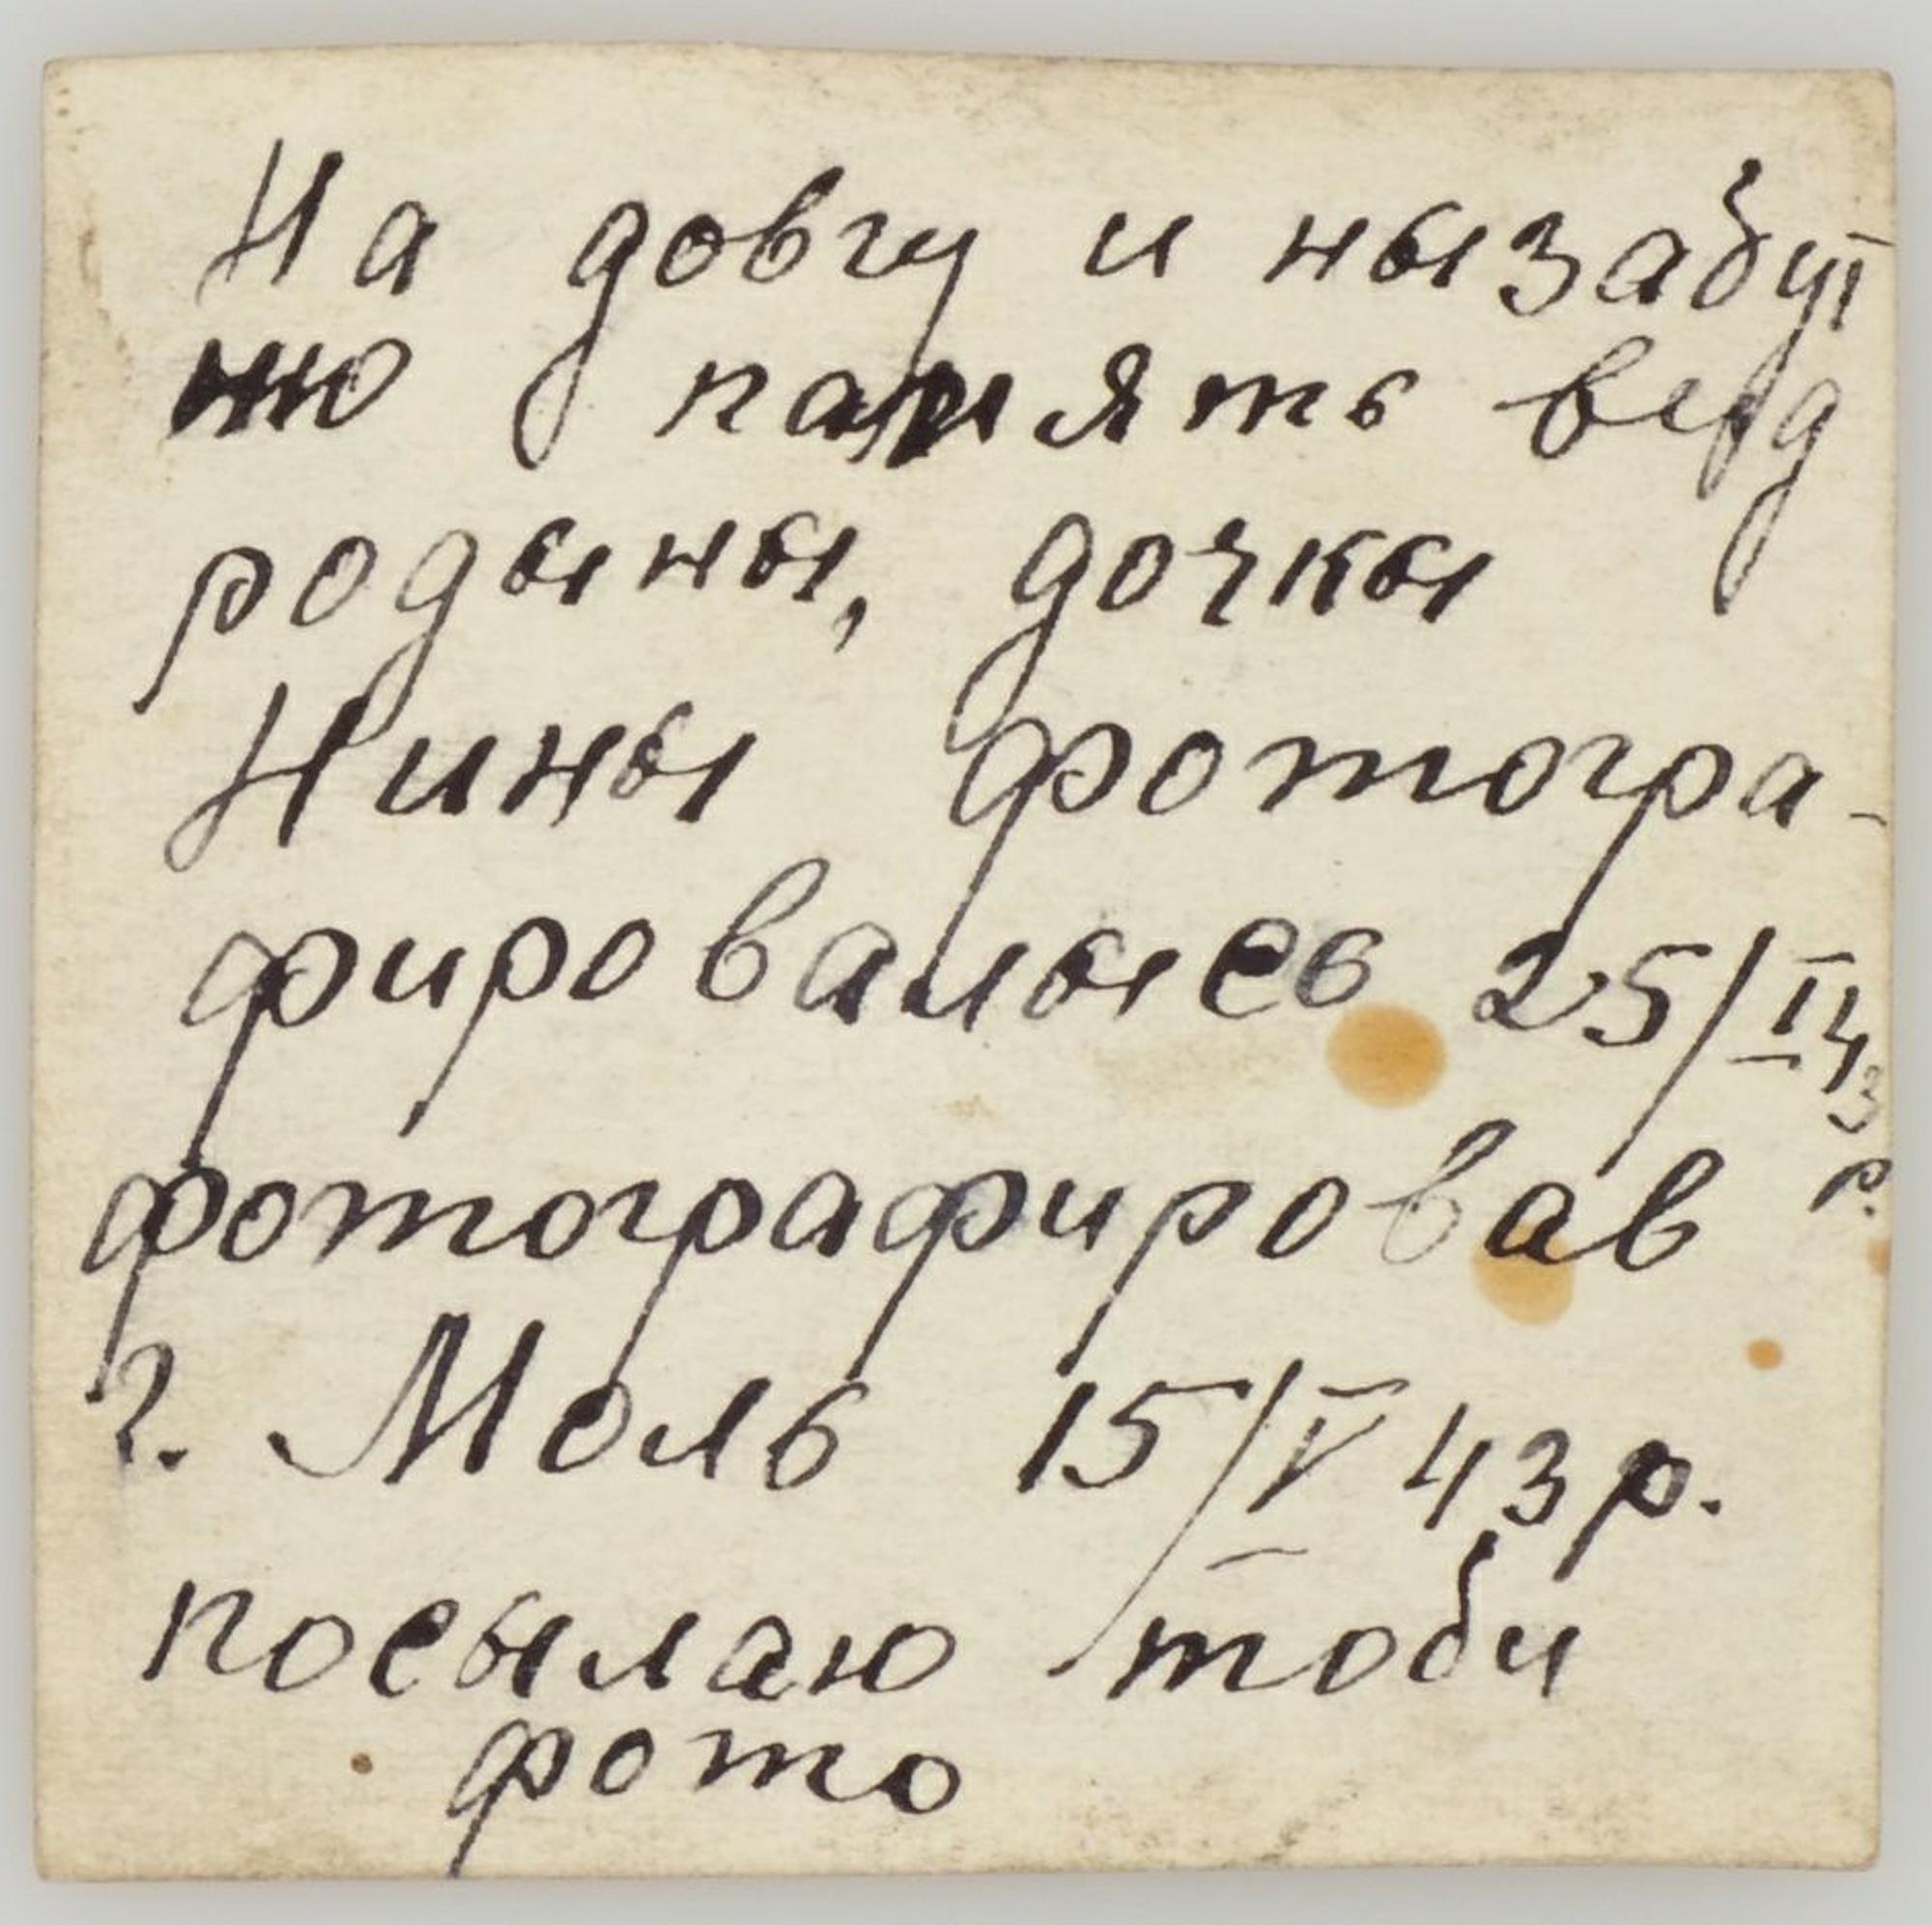 На довгу и нызабут
ню память вид
родыны, дочкы
Нины фотогра-
фировалысь 25/I 43
р.
фотографировав
г. Моль 15/V 43 р.
посылаю тоби
фото